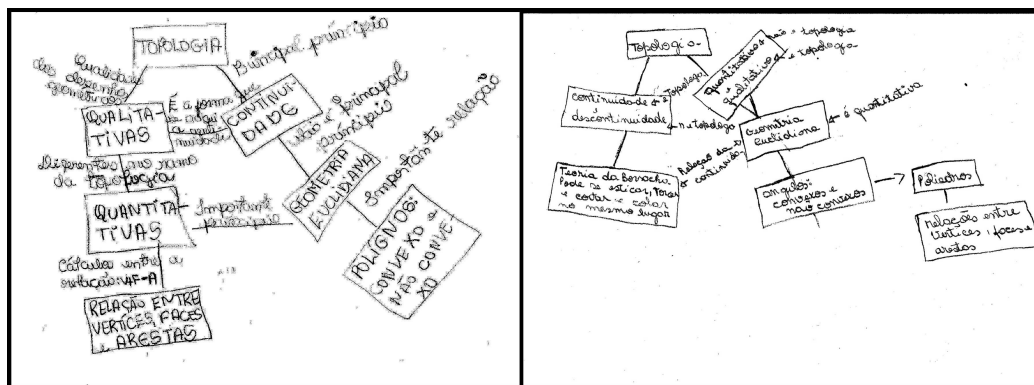 TOPOLOGIA
Principal princípio
Qualidade
dos desenho
geometricos
QUALITA-
TIVAS
É a forma que
CONTINUI-
DADE
Não é principal
princípio
Diferentes no ramo
da topologia
QUANTITA-
TIVAS
Importante
principio
GEOMETRIA
EUCLIDIANA
Importante relação
POLÍGNOS:
CONVEXO e
NÃO CONVE
XO
Cálculo entre a
relação: V+F-A
RELAÇÃO ENTRE
VERTICES, FACES
e ARESTAS
Topologia
quantitativos não é topologia
qualitativos é topologia
continuidade
descontinuidade
Topologo
na topologo
Geometria
Euclidiana
é quantitativa
Relação da
continuida
Teoria da Borracha
Pode se esticar,
e cortar e colar
no mesmo lugar
angulos:
convexos e
não convexos
Poliedros
relações entre
vertices, faces e
arestas